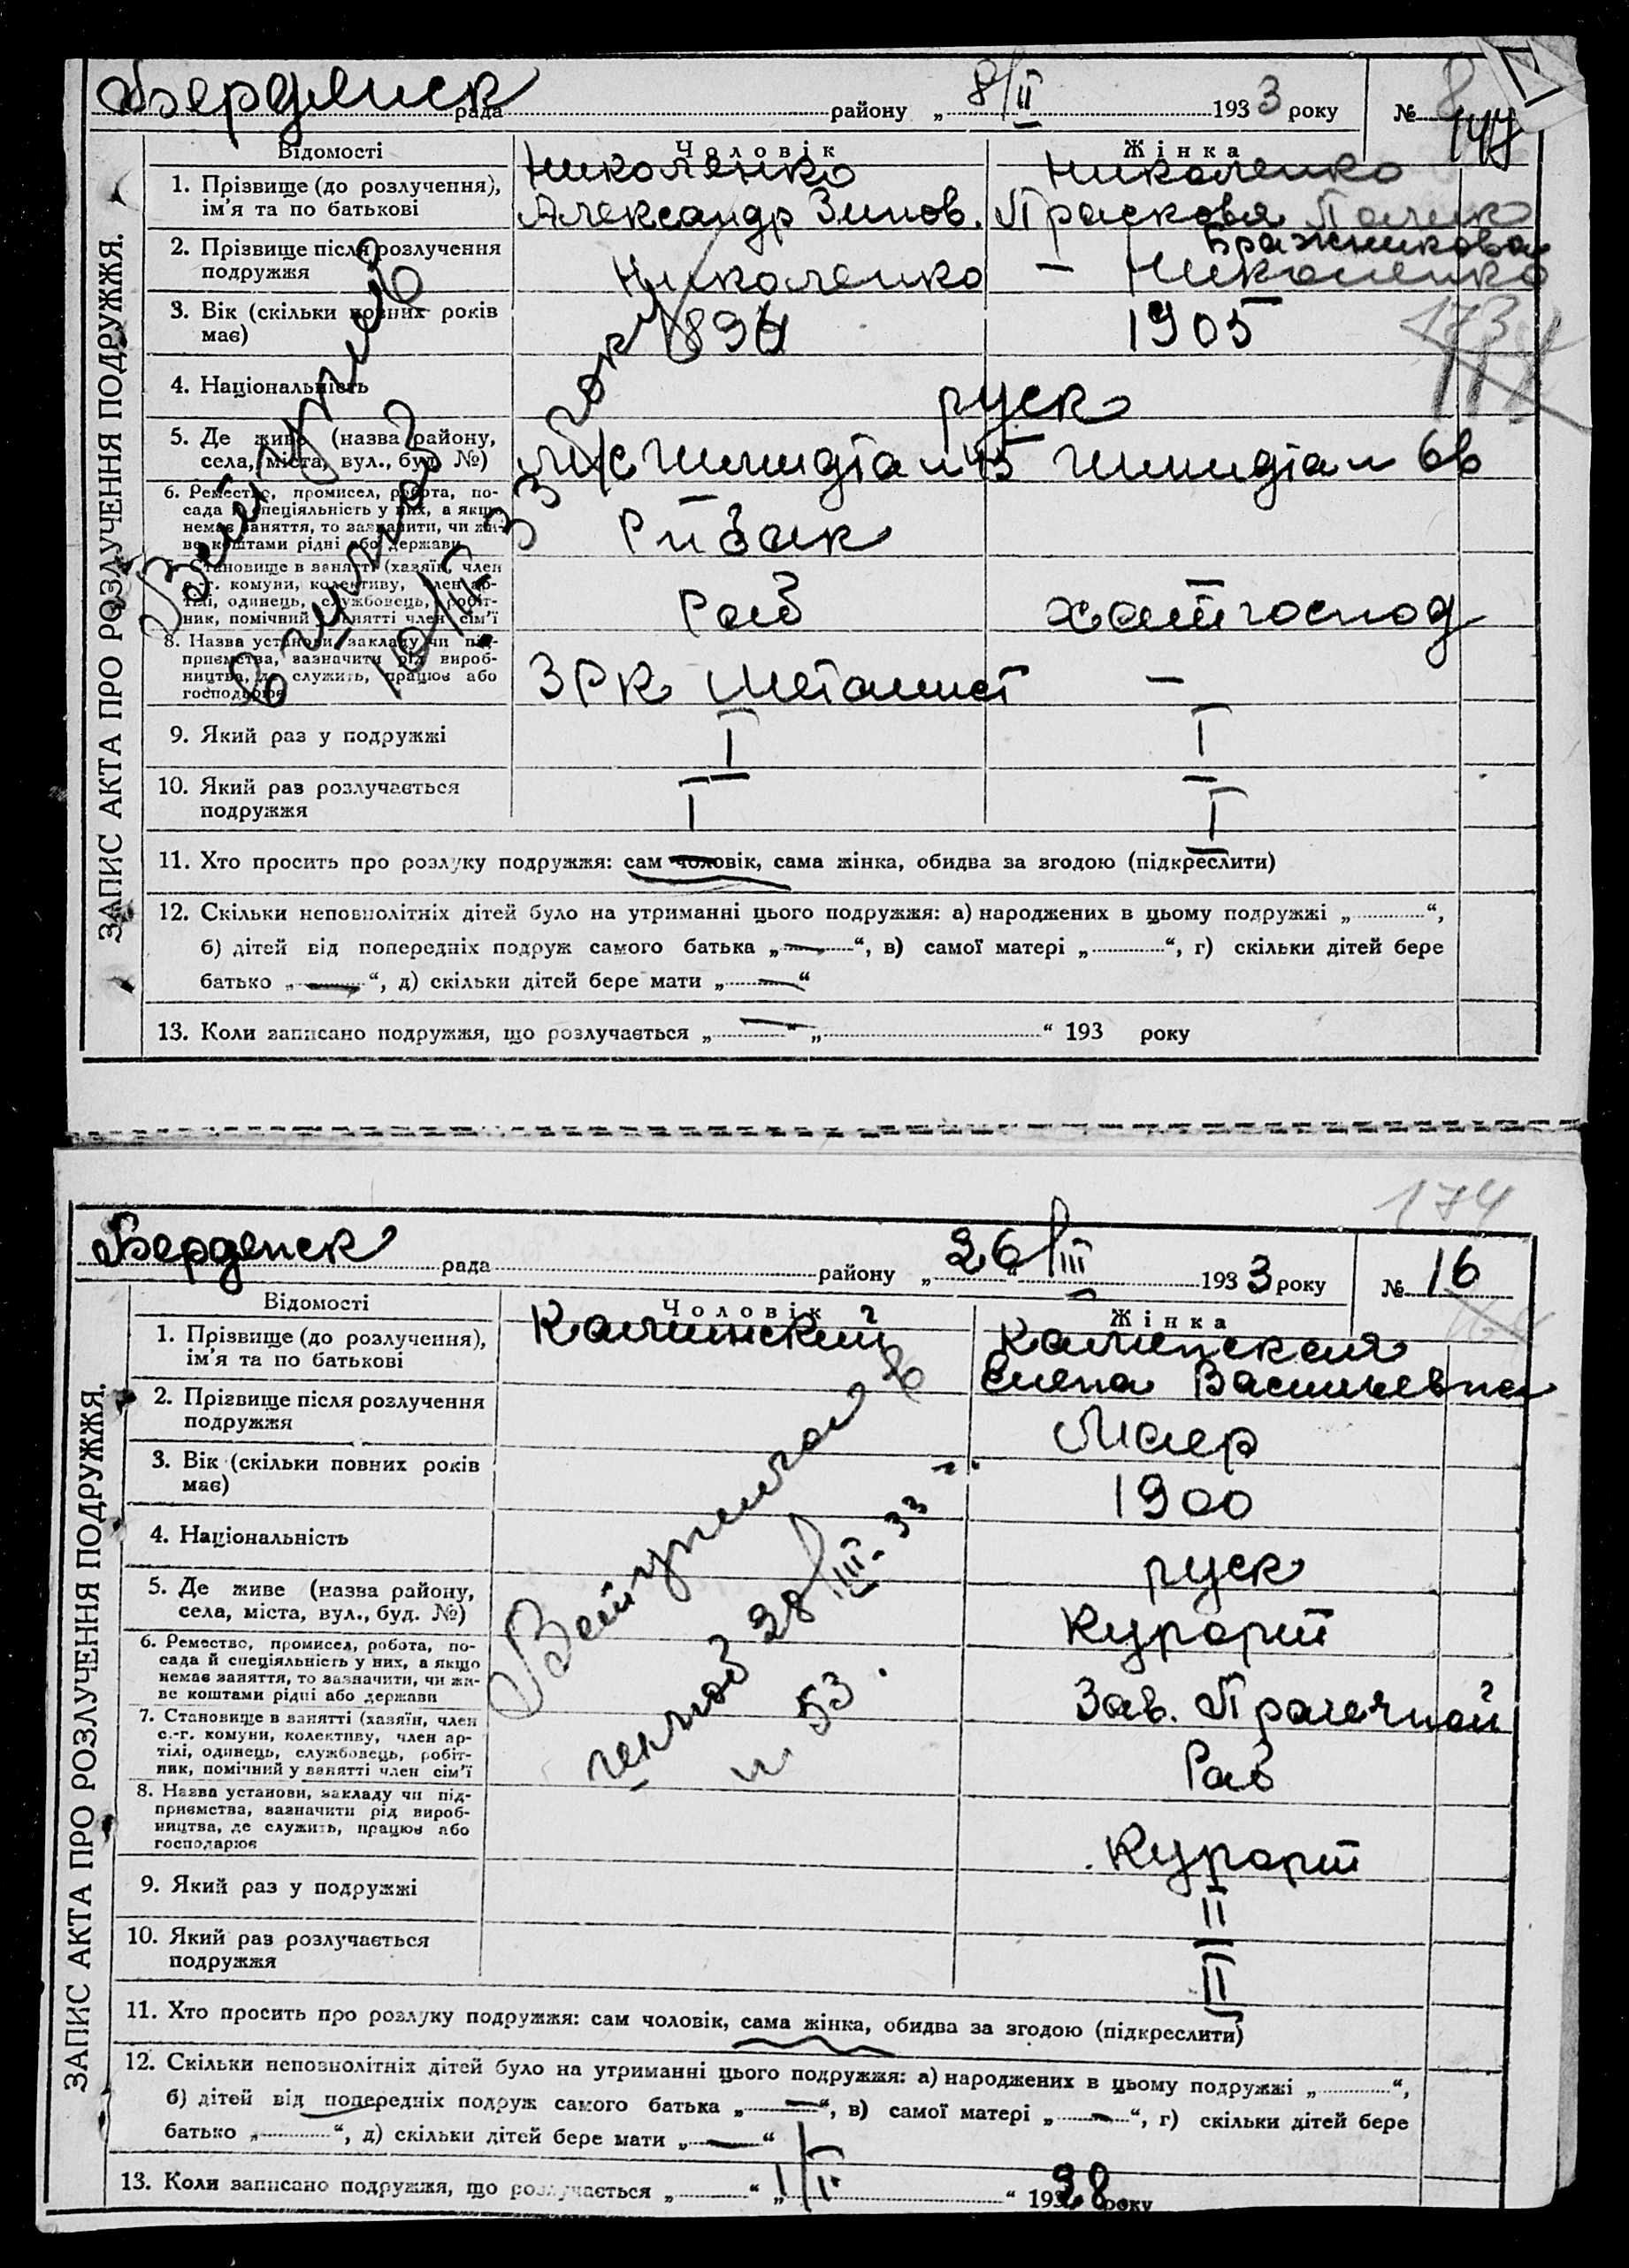 Бердянск рада району „ 8/II 1933 року № 8
144
Відомості Чоловік Жінка
1. Прізвище (до розлучення), ім'я та по батькові
Николенко Николенко
Александр Зинов. Прасковья
2. Прізвище після розлучення подружжя
Бражникова
Николенко — Николенко
3. Вік (скільки повних років має)
1905
173
4. Національність
руск
5. Де живе (назва району, села, міста, вул., буд. №)
6. Ремество, промисел, робота, по-
сада й спеціяльність у них, а якщо
немає заняття, то зазначити, чи жи-
ве коштами рідні або держави
Рибак
7. Становище в занятті (хазяїн, член
с.-г. комуни, колективу, член ар-
тілі, одинець, службовець, робіт-
ник, помічний у занятті член сім'ї
Раб
8. Назва установи, закладу чи під-
приємства, зазначити рід вироб-
ництва, де служить, працює або
господарює
ЗРК Металист —
9. Який раз у подружжі
I I
10. Який раз розлучається
подружжя
I I
11. Хто просить про розлуку подружжя: сам чоловік, сама жінка, обидва за згодою (підкреслити)
12. Скільки неповнолітніх дітей було на утриманні цього подружжя: а) народжених в цьому подружжі „ “,
б) дітей від попередніх подруж самого батька „—“, в) самої матері „ “, г) скільки дітей бере
батько „—“, д) скільки дітей бере мати „—“
13. Коли записано подружжя, що розлучається „—“ „ “ 193 року
ЗАПИС АКТА ПРО РОЗЛУЧЕННЯ ПОДРУЖЖЯ.
174
Бердянск рада району „ 26/III 1933 року № 16
Відомості Чоловік Жінка
1. Прізвище (до розлучення),
ім'я та по батькові
Калинский Калинская
Елена Васильевна
2. Прізвище після розлучення
подружжя
Маер
3. Вік (скільки повних років
має)
1900
4. Національність
руск
5. Де живе (назва району,
села, міста, вул., буд. №)
Курорт
6. Ремество, промисел, робота, по-
сада й спеціяльність у них, а якщо
немає заняття, то зазначити, чи жи-
ве коштами рідні або держави
Зав. Прачечной
7. Становище в занятті (хазяїн, член
с.-г. комуни, колективу, член ар-
тілі, одинець, службовець, робіт-
ник, помічний у занятті член сім'ї
Раб
8. Назва установи, закладу чи під-
приємства, зазначити рід вироб-
ництва, де служить, працює або
господарює
Курорт
28/III-33
н 53.
9. Який раз у подружжі
II
10. Який раз розлучається
подружжя
II
11. Хто просить про розлуку подружжя: сам чоловік, сама жінка, обидва за згодою (підкреслити)
12. Скільки неповнолітніх дітей було на утриманні цього подружжя: а) народжених в цьому подружжі „ “,
б) дітей від попередніх подруж самого батька „—“, в) самої матері „—“, г) скільки дітей бере
батько „ “, д) скільки дітей бере мати „—“
13. Коли записано подружжя, що розлучається „ “ „ “ 1928 року
ЗАПИС АКТА ПРО РОЗЛУЧЕННЯ ПОДРУЖЖЯ.